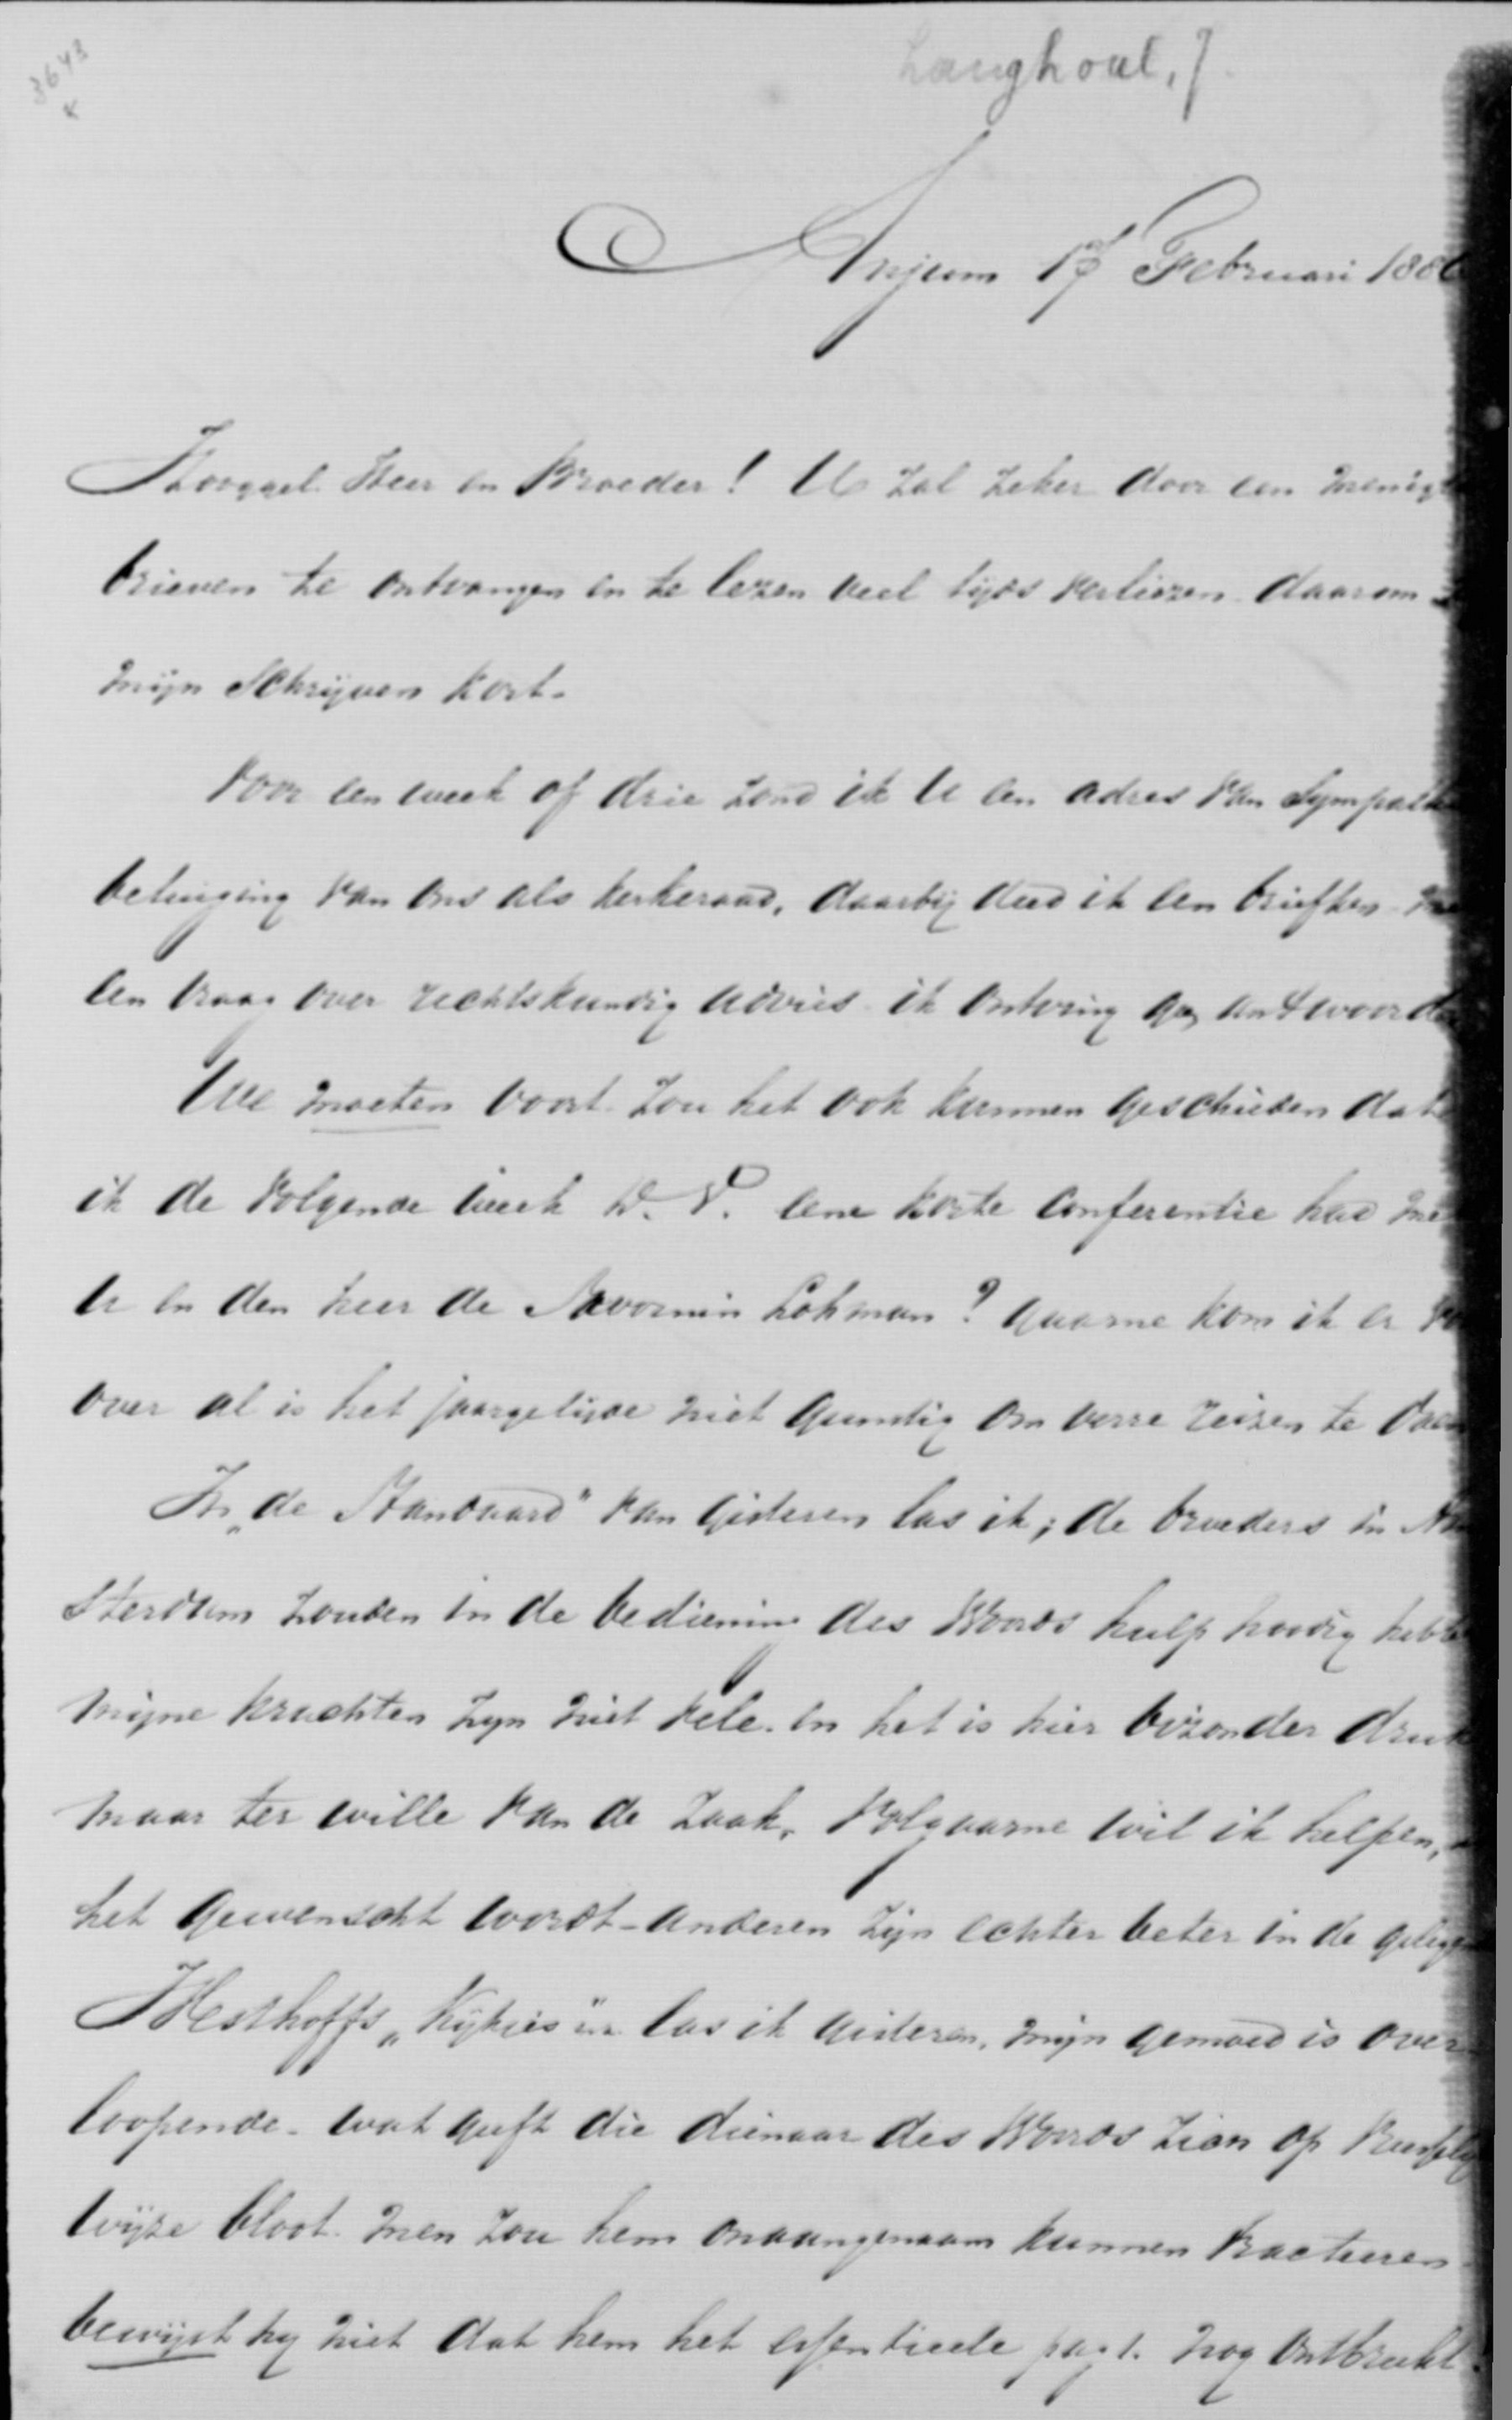 3643
x
Langhout, J.
Anjum 17 Februari 1886
Hooggel. Heer en Broeder! U zal zeker door een menigte
brieven te ontvangen en te lezen veel tijds verliezen daarom
mijn schrijven kort.
Voor een week of drie zond ik U een adres van Sympathie
betuiging van ons als kerkeraad, daarbij deed ik een briefken
een vraag over rechtskundig advies. ik ontving geen antwoord
We moeten voort. Zou het ook kunnen geschieden dat
ik de volgende week D.V. eene korte conferentie had met
U en den heer de Savornin Lohman? gaarne kom ik er
over al is het jaargetijde niet gunstig om verre reizen te doen
In „de Standaard" van gisteren las ik; de broeders in Am
sterdam zouden in de bediening des Woords hulp noodig hebben
mijne krachten zyn niet vele. en het is hier bizonder druk
maar ter wille van de zaak. Volgaarne wil ik helpen,
het gewenscht wordt - anderen zijn echter beter in de gelegen
Westhoffs „Kijkies" las ik gisteren, mijn gemoed is over-
loopende. wat geeft die dienaar des Woords Zion op
wijze bloot. men zou hem onaangenaam kunnen tracteeren
bewijst hy niet dat hem het essentieele nog ontbreekt.